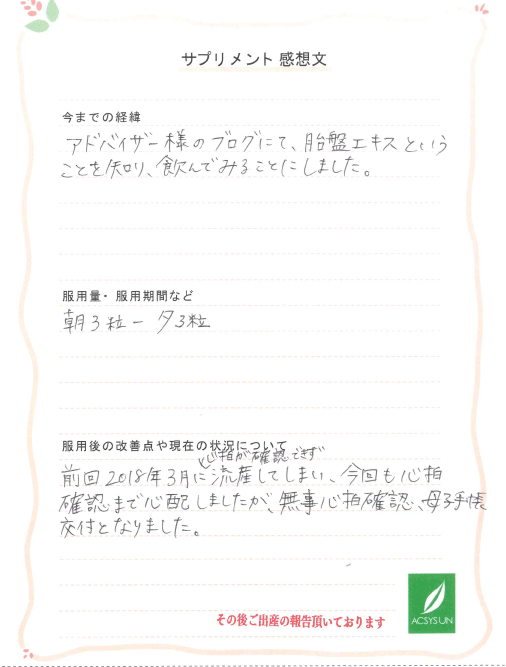 サプリメント 感想文
今までの経緯
アドバイザー様のブログにて、胎盤エキスという
ことを知り、飲んでみることにしました。
服用量・服用期間など
朝3粒ー夕3粒
服用後の改善点や現在の状況について
心拍が確認できず
前回2018年3月に流産してしまい、今回も心拍
確認まで心配しましたが、無事心拍確認、母子手帳
交付となりました。
その後ご出産の報告頂いております
ACSYSUN